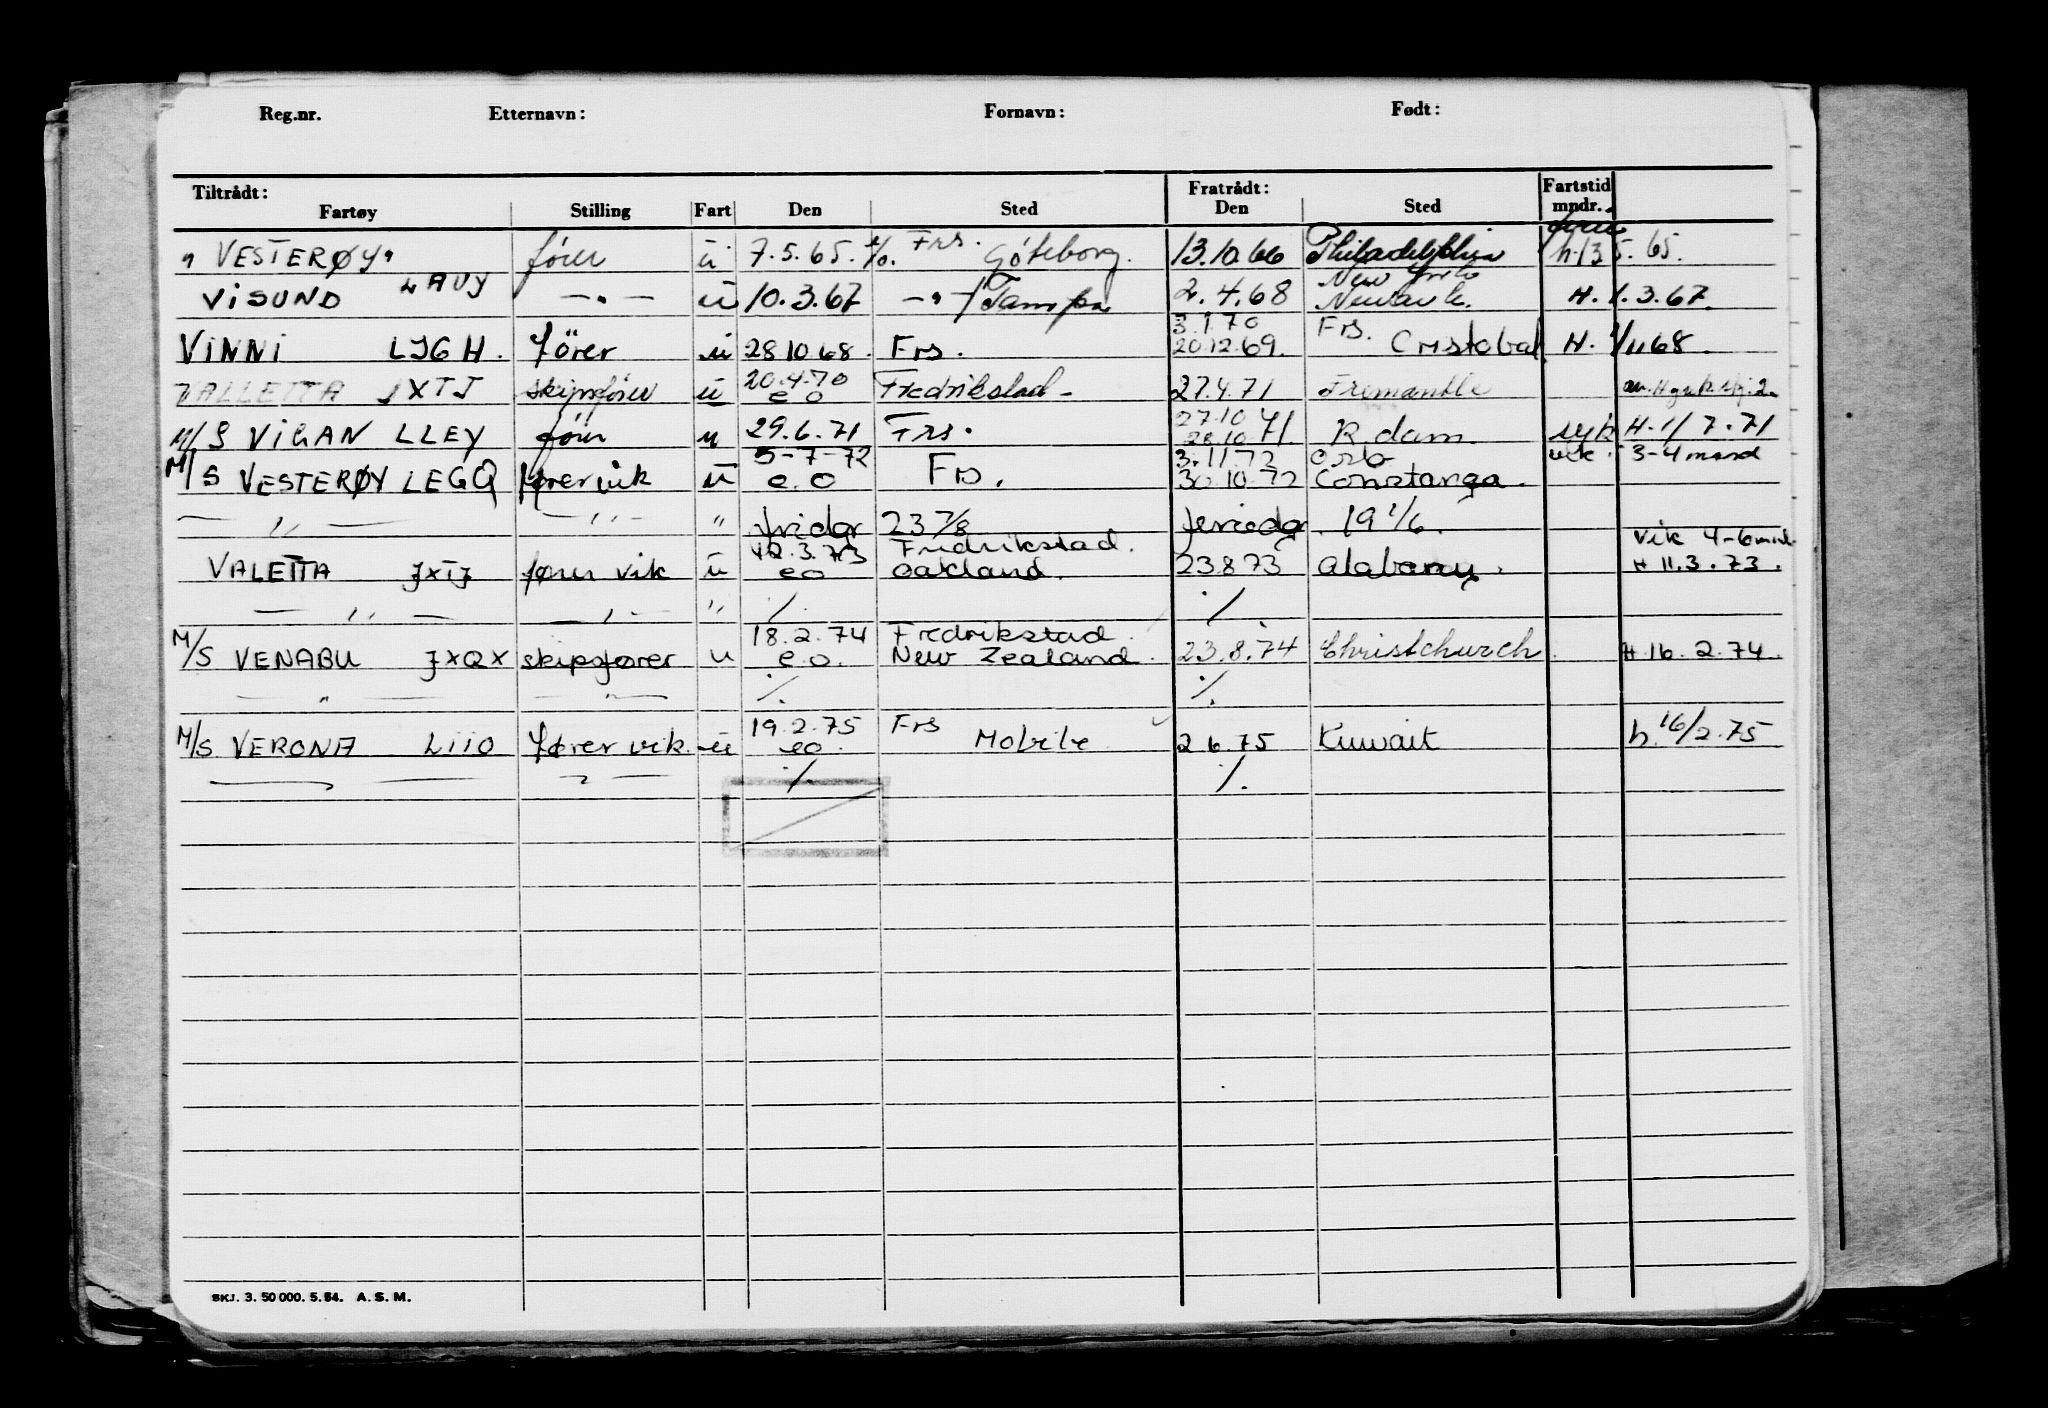 Reg.nr. Etternavn: Fornavn: Født:
Tiltrådt: Fratrådt: Fartstid
Fartøy Stilling Fart Den Sted Den Sted mndr.
"VESTERØY" fører u 7.5.65. Frs. Göteborg. 13.10.66 Philadelphia h.13 5.65.
VISUND LAUY —"— u 10.3.67 —"— Tampa 2.4.68 New York Newark. H. 1.3.67.
VINNI LJGH. fører u 28 10 68. Frs. 3.1.70 20.12.69. Frs. Cristobal H. 1/11 68.
VALLETTA JXTJ skipsfører u 20.4.70 e o Fredrikstad - 27.4.71 Fremantle
M/S VIGAN LLEY fører u 29.6.71 Frs. 27.10 28.10 71. R.dam. syk H. 1/7.71
M/S VESTERØY LEGQ fører vik u 5-7-72 e.o Frs. 3.11.72 30.10.72 Oslo Constanza. vik. 3-4 mnd
—"— —"— " 23 7/8 19 1/6.
VALETTA JXTJ fører vik u 12.3.73 eo Fredrikstad. Oakland. 23 8 73 vik 4-6 mnd. H 11.3.73.
—"— —"— " ./. ./.
M/S VENABU JXQX skipsfører u 18.2.74 e.o. Fredrikstad New Zealand. 23.8.74 Christchurch H 16.2.74.
—"— —"— ./. ./.
M/S VERONA LIIO fører vik. u 19.2.75 eo. Frs Mobile 2 6.75 Kuwait h. 16/2.75
—"— —"— ./. ./.
SKJ. 3. 50 000. 5. 54. A. S. M.